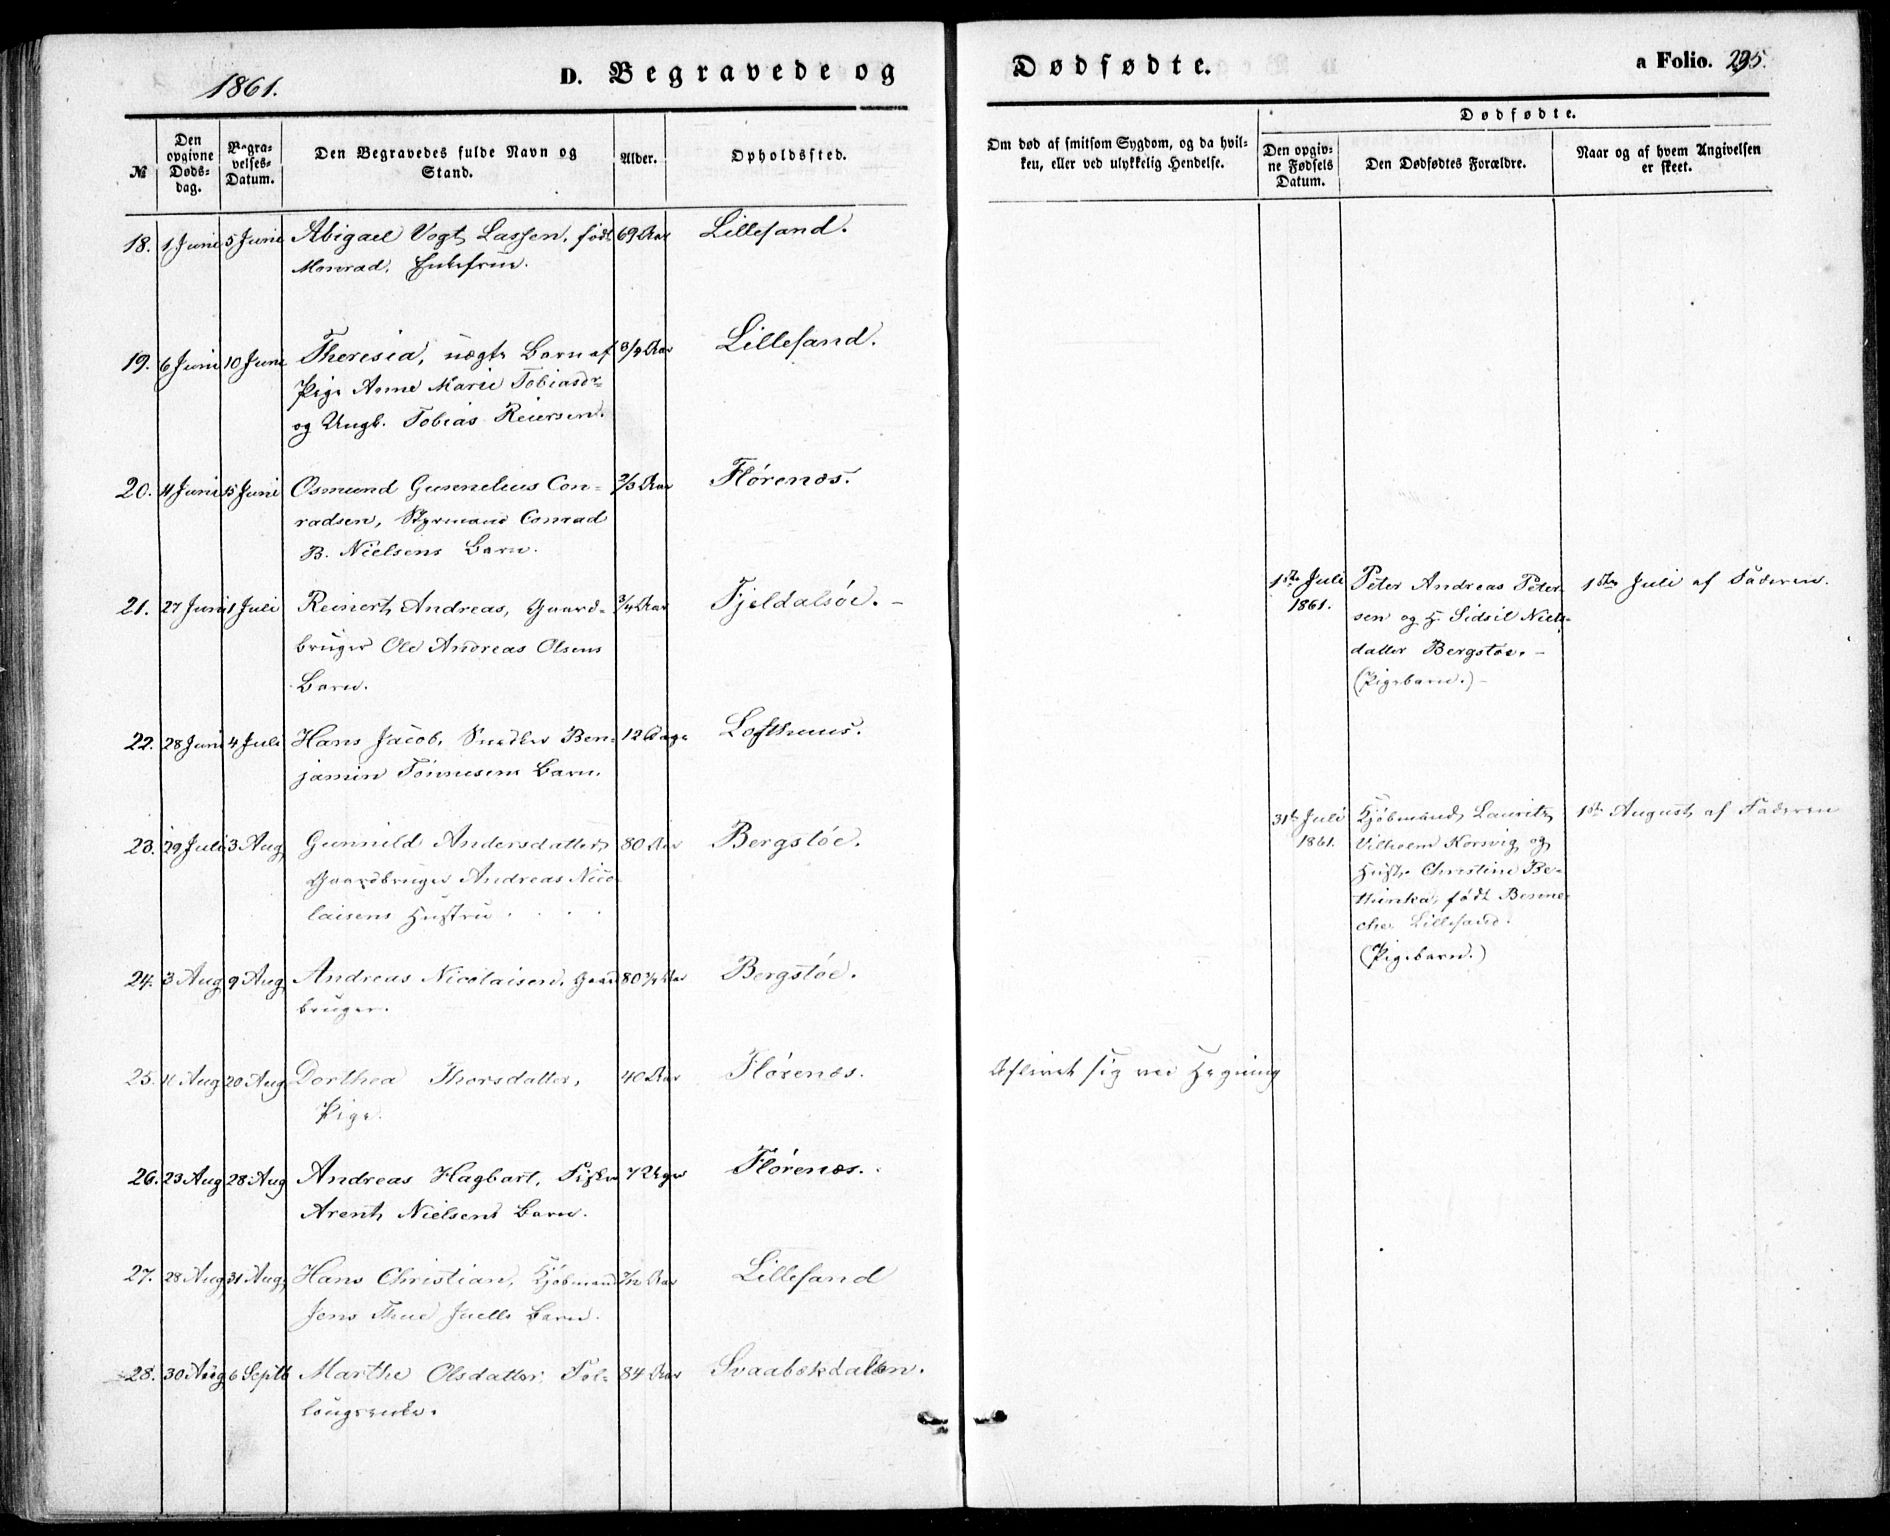 1861.
D. Begravede og
Dødfødte.
a Folio. 295.
№
Den opgivne Døds-dag.
Begra-velses-Datum.
Den Begravedes fulde Navn og Stand.
Alder.
Opholdssted.
Om død af smitsom Sygdom, og da hvil-ken, eller ved ulykkelig Hendelse.
Dødfødte.
Den opgiv-ne Fødsels Datum.
Den Dødfødtes Forældre.
Naar og af hvem Angivelsen er skeet.
18. 1 Juni 5 Juni Abigael Vogt Lassen, født 69 Aar Lillesand.
Monrad, Enkefrue.
19. 6 Juni 10 Juni Theresia, uægte Barn af 3/4 Aar Lillesand.
Pige Anne Marie Tobiasdr
og Ungk. Tobias Reiersen.
20. 4 Juni 15 Juni Osmund Gunnelius Con- 2/3 Aar Flørenæs.
radsen, Styrmand Conrad
B. Nielsens Barn.
21. 27 Juni 1 Juli Reinert Andreas, Gaard- 3/4 Aar Fjeldalsøe. -
bruger Ole Andreas Olsens
Barn.
22. 28 Juni 4 Juli Hans Jacob, Snedker Ben- 12 Dage Lofthuus.
jamin Tønnesens Barn.
23. 29 Juli 3 Aug Gunnild Andersdatter, 80 Aar Bergstøe.
Gaardbruger Andreas Nico-
laisens Hustru
24. 3 Aug 9 Aug Andreas Nicolaisen, Gaard 80 3/4 Aar Bergstøe.
bruger.
25. 11 Aug 20 Aug Dorthea Thorsdatter, 40 Aar Flørenæs. Aflivet sig ved Hægning
Pige.
26. 23 Aug 28 Aug Andreas Hagbart, Fisker 7 Uger Flørenæs.
Arent Nielsens Barn.
27. 28 Aug 31 Aug Hans Christian, Kjøbmand 7/12 Aar Lillesand
Jens Thue Juells Barn.
28. 30 Aug 6 Septb Marthe Olsdatter, Føl- 84 Aar Svaabekdalen.
lougsenke.
1ste Juli 1861. Peter Andreas Peter- 1ste Juli af Faderen.
sen og H. Sidsil Niels-
datter Bergstøe. -
(Pigebarn.) -
31te Juli 1861. Kjøbmand Lauritz 1ste August af Faderen
Vilhelm Korsvig og
Hustr. Christine Be-
thinka, født Benne-
che, Lillesand.
(Pigebarn.)